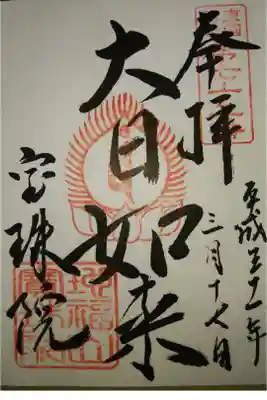 奉拝
平成三十一年
三月十日
大日如来
宝珠院